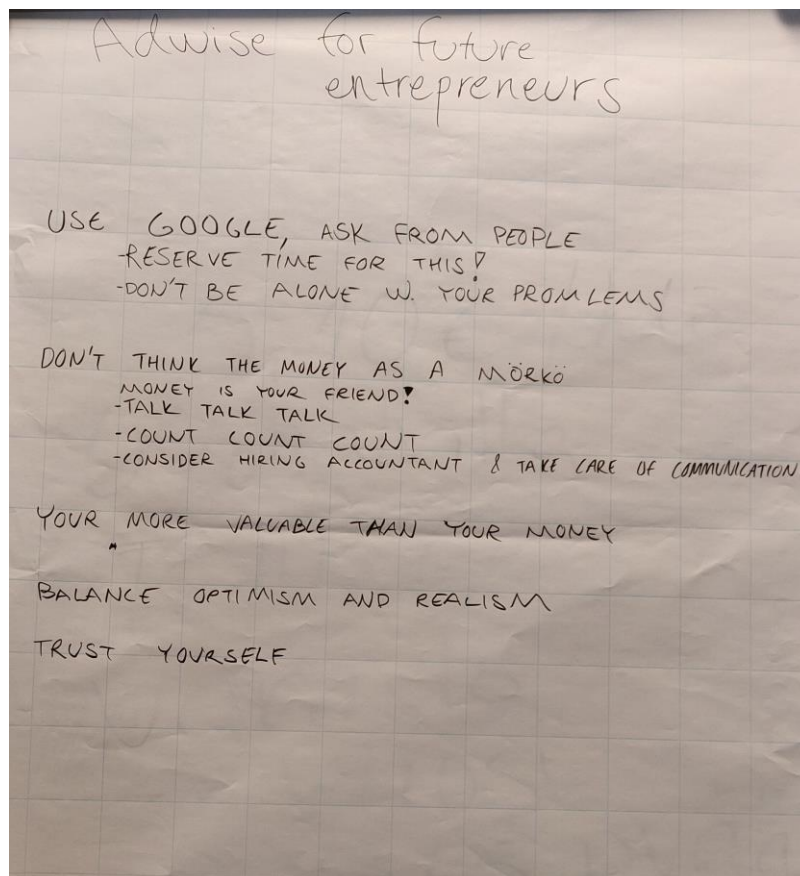 Adwise for future
entrepreneurs
USE GOOGLE, ASK FROM PEOPLE
-RESERVE TIME FOR THIS!
-DON'T BE ALONE W. YOUR PROMLEMS
DON'T THINK THE MONEY AS A MÖRKÖ
MONEY IS YOUR FRIEND!
-TALK TALK TALK
-COUNT COUNT COUNT
-CONSIDER HIRING ACCOUNTANT & TAKE CARE OF COMMUNICATION
YOUR MORE VALUABLE THAN YOUR MONEY
BALANCE OPTIMISM AND REALISM
TRUST YOURSELF